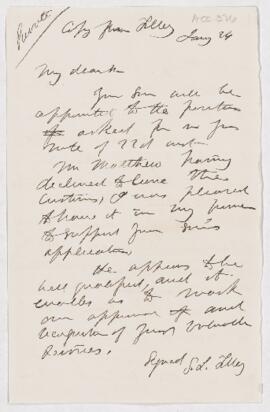 Private
Copy from Tilley
ACC 576
Jany 24
My dear Sir
Your Son will be
appointed to the position
asked for in your
note of 22d inst.
Mr Matthew having
declined to leave the
Customs, I was pleased
to have it in my power
to support your son's
application.
He appears to be
well qualified, and it
enables us to mark
our appreciation and
recognition of your valuable
Services.
Signed S. L. Tilley